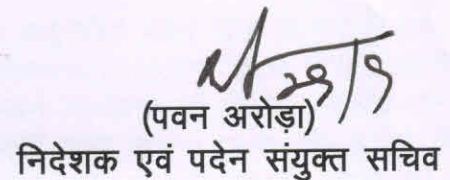 (पवन अरोड़ा)
निदेशक एवं पदेन संयुक्त सचिव